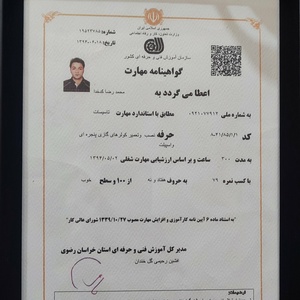 جمهوری اسلامی ایران
وزارت تعاون، کار و رفاه اجتماعی
شماره:
تاریخ:
سازمان آموزش فنی و حرفه ای کشور
گواهینامه مهارت
اعطا می گردد به
محمد رضا کدخدا
به شماره ملی ۰۹۲۱۰۷۷۹۱۲ مطابق با استاندارد مهارت تاسیسات
کد حرفه نصب و تعمیر کولرهای گازی پنجره ای
واسپلیت
به مدت ۳۰۰ ساعت و بر اساس ارزشیابی مهارت شغلی ۱۳۹۴/۰۵/۰۲
با کسب نمره ۷۹ به حروف هفتاد و نه از ۱۰۰ و سطح خوب
"به استناد ماده ۶ آیین نامه کارآموزی و افزایش مهارت مصوب ۱۳۳۹/۱۰/۲۷ شورای عالی کار"
مدیر کل آموزش فنی و حرفه ای استان خراسان رضوی
افشین رحیمی گل خندان